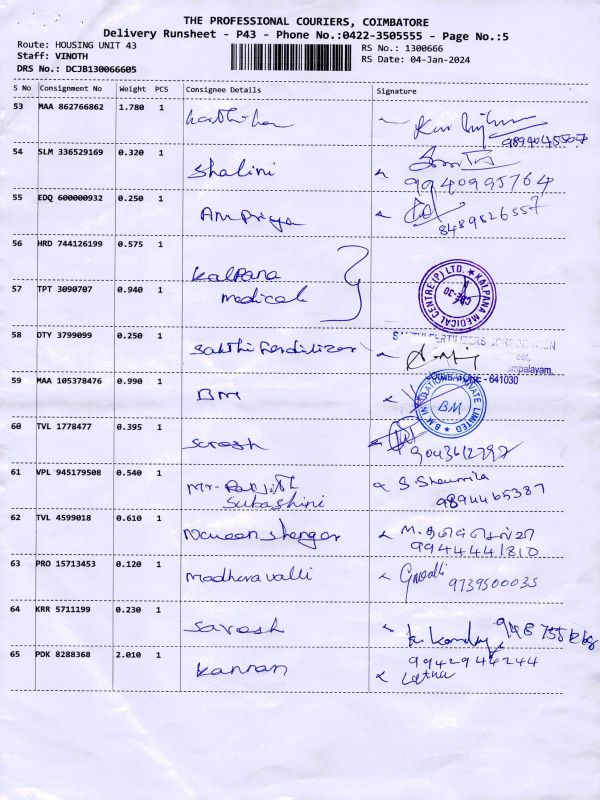 THE PROFESSIONAL COURIERS, COIMBATORE
Delivery Runsheet - P43 - Phone No.:0422-3505555 - Page No.:5
Route: HOUSING UNIT 43
RS No.: 1300666
Staff: VINOTH
RS Date: 04-Jan-2024
DRS No.: DCJB130066605
S No Consignment No Weight PCS Consignee Details Signature
53 MAA 862766862 1.780 1
54 SLM 336529169 0.320 1 Shalini
9940995764
55 EDQ 600000932 0.250 1 Am Priya 8489826557
56 HRD 744126199 0.575 1 Kalpana
57 TPT 3090707 0.940 1 medical
KALPANA MEDICAL CENTRE(P) LTD.
CBE-30
58 DTY 3799099 0.250 1 Sakthi Ferdilizer
SAKTHI FERTILIZERS CORPORATION
COIMBATORE - 641030
59 MAA 105378476 0.990 1 BM
B.M INSULATION PRIVATE LIMITED
BM
60 TVL 1778477 0.395 1 Suresh 9043612797
61 VPL 945179508 0.540 1 Mr. Ranjith S Shaumila
Subashini 9894465387
62 TVL 4599018 0.610 1 M. தமிழ் செல்வி
9944441810
63 PRO 15713453 0.120 1 Madhuravalli
9739500035
64 KRR 5711199 0.230 1 Saresh
65 PDK 8288368 2.010 1 Kannan 9942944244
Latha